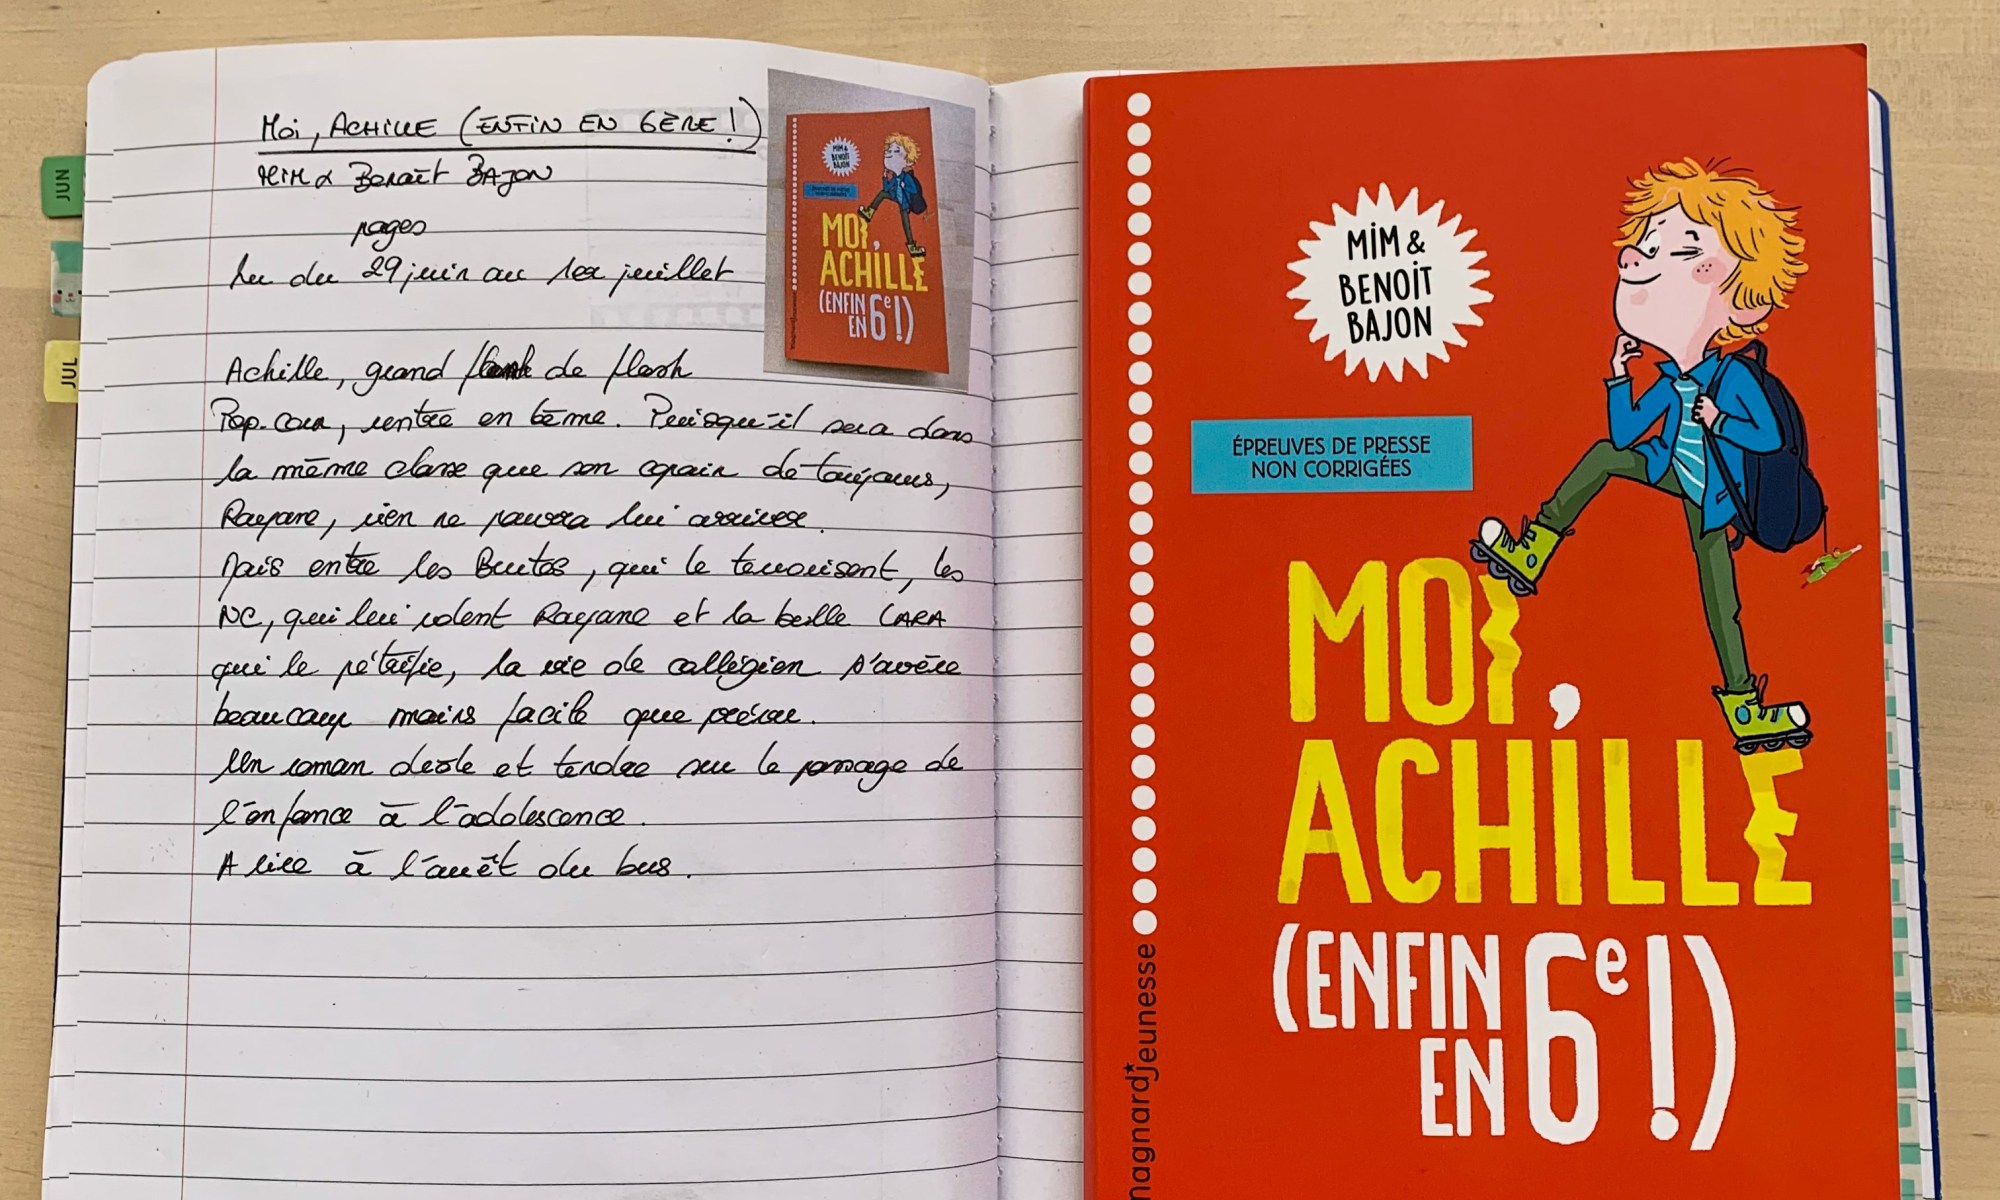 Moi, ACHILLE (ENFIN EN 6ÈME !)
MIM & Benoît BAJON
pages
Lu du 29 juin au 1er juillet
Achille, grand de flash
Pop-Corn, rentre en 6ème. Puisqu'il sera dans
la même classe que son copain de toujours,
Rayane, rien ne pourra lui arriver.
Mais entre les Brutos, qui le terrorisent, les
NC, qui lui volent Rayane et la belle CARA
qui le pétrifie, la vie de collégien s'avère
beaucoup moins facile que prévu.
Un roman drôle et tendre sur le passage de
l'enfance à l'adolescence.
A lire à l'arrêt du bus.
JUN
JUL
MIM &
BENOIT
BAJON
MOI,
ACHILLE
(ENFIN
EN 6e !)
MIM &
BENOIT
BAJON
ÉPREUVES DE PRESSE
NON CORRIGÉES
MOI,
ACHILLE
(ENFIN
EN 6e !)
magnard jeunesse